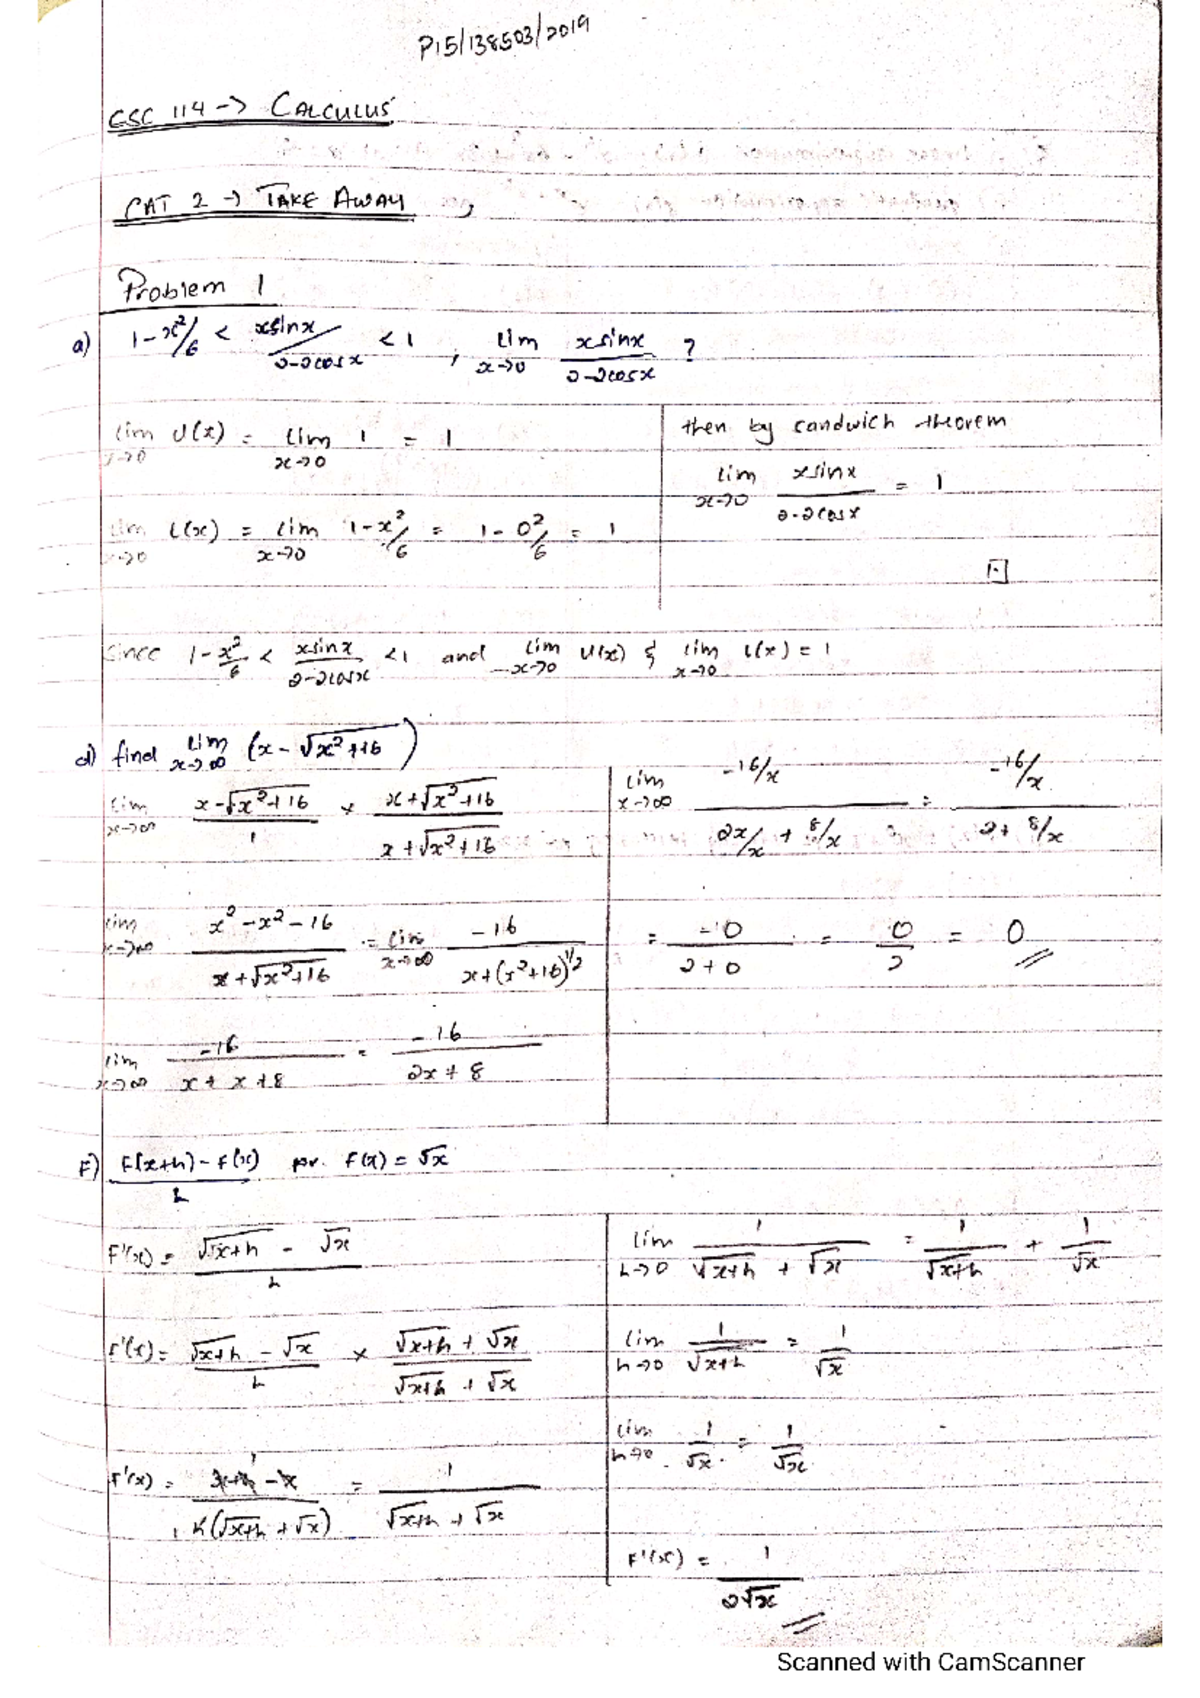 P15/138503/2019
CSC 114 → CALCULUS
CAT 2 → TAKE AWAY
Problem 1
a) 1 - x²/6 < xsinx/2-2cosx < 1 , lim x→0 xsinx/2-2cosx ?
lim x→0 U(x) = lim x→0 1 = 1
lim x→0 L(x) = lim x→0 1 - x²/6 = 1 - 0²/6 = 1
then by sandwich theorem
lim x→0 xsinx/2-2cosx = 1
Since 1 - x²/6 < xsinx/2-2cosx < 1 and lim x→0 U(x) & lim x→0 L(x) = 1
d) find lim x→∞ (x - √x²+16)
lim x→∞ x-√x²+16/1 × x+√x²+16/x+√x²+16
lim x→∞ x²-x²-16/x+√x²+16 = lim x→∞ -16/x+(x²+16)^1/2
lim x→∞ -16/x+x+8 = -16/2x+8
lim x→∞ -16/x / 2x/x + 8/x = -16/x / 2+8/x
= -0/2+0 = 0/2 = 0
F) F(x+h)-f(x)/h for F(x) = √x
F'(x) = √x+h - √x/h
F'(x) = √x+h - √x/h × √x+h + √x/√x+h + √x
F'(x) = x+h-x/h(√x+h + √x) = 1/√x+h + √x
lim h→0 1/√x+h + √x = 1/√x+h + 1/√x
lim h→0 1/√x+h = 1/√x
lim h→0 1/√x = 1/√x
F'(x) = 1/2√x
Scanned with CamScanner